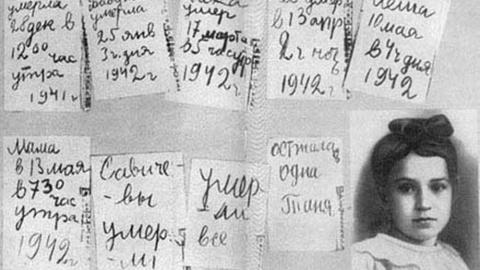 умерла
28 дек в
12 00 час
утра
1941 г
умерла
25 янв
3 ч. дня
1942 г
умер
17 марта
в 5 час утр
1942 г
в 13 апр
2 ч ноч
в
1942 г
10 мая
в 4 ч дня
1942
Мама
в 13 мая
в 7 30
час
утра
1942 г
Савиче-
-вы
умер-
умер
-ли
все
остала
одна
Таня.